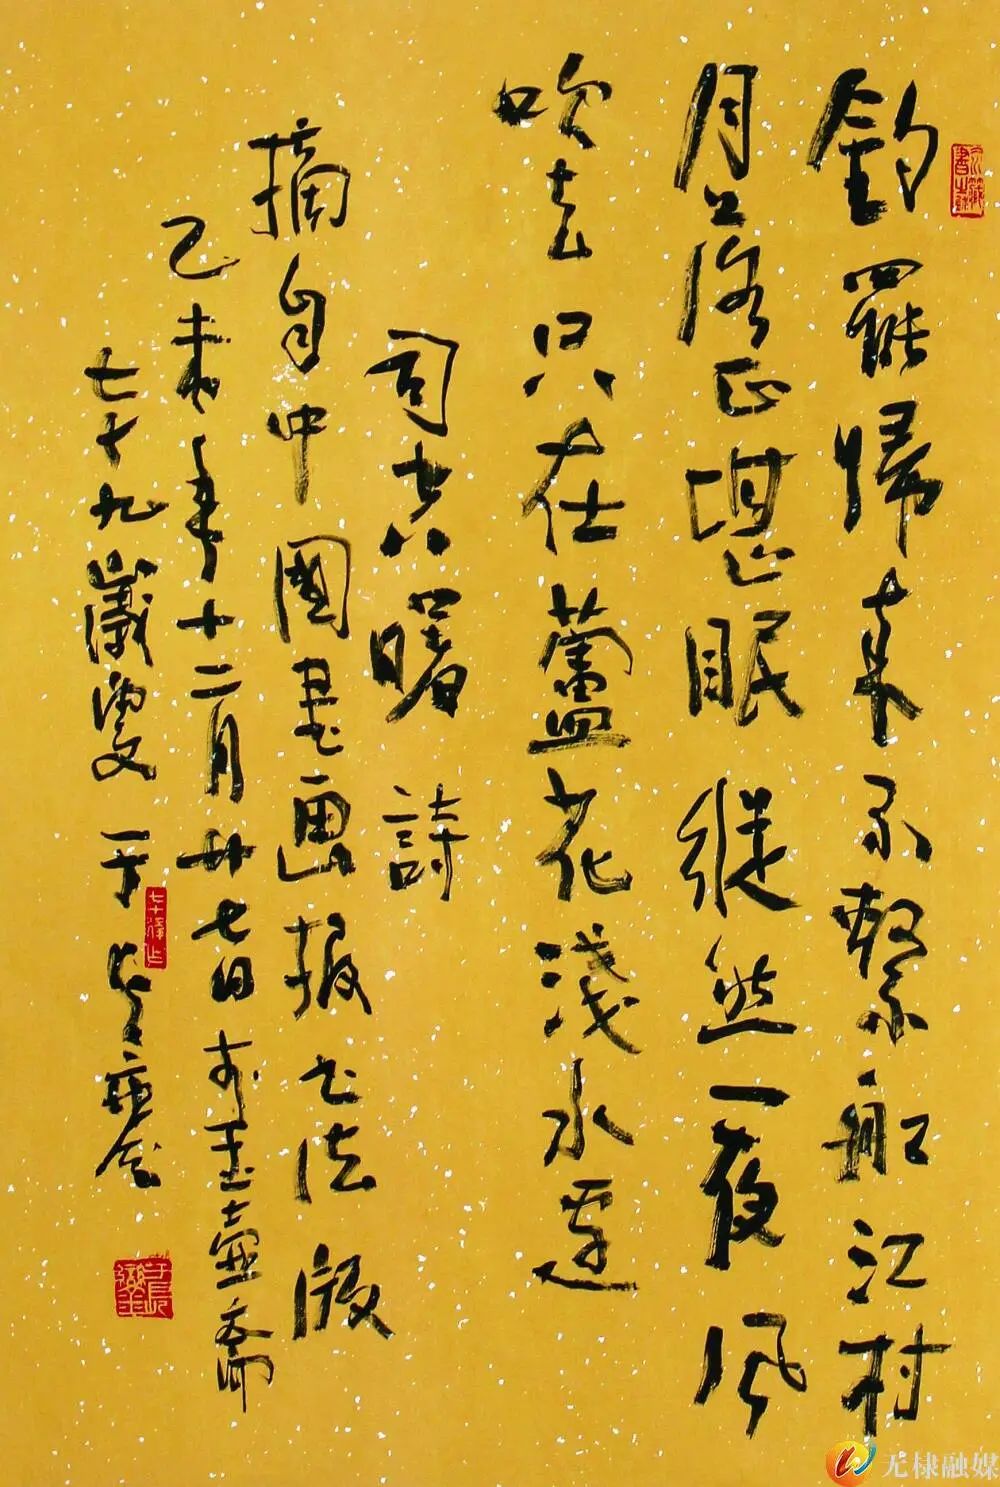 釣罷歸来不繫船江村
月落正堪眠縱然一夜風
吹去只在蘆花淺水邊
司空曙詩
摘自中國書画報书法版
乙未年十二月廿七日於玉壺斋
七十九歲叟
七十後作
无棣融媒